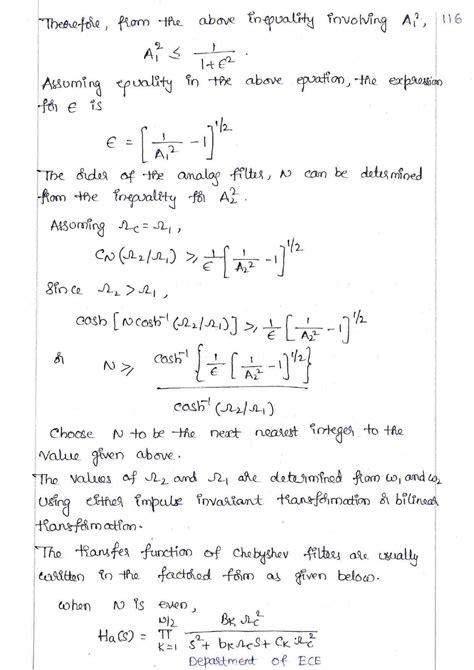 Therefore, from the above inequality involving A₁², 116
A₁² ≤ 1/(1+ε²).
Assuming equality in the above equation, the expression
for ε is
ε = [1/A₁² − 1]^{1/2}
The order of the analog filter, N can be determined
from the inequality for A₂².
Assuming Ωc = Ω₁,
CN(Ω₂/Ω₁) ≥ 1/ε [1/A₂² − 1]^{1/2}
Since Ω₂ > Ω₁,
cosh [N cosh⁻¹(Ω₂/Ω₁)] ≥ 1/ε [1/A₂² − 1]^{1/2}
or N ≥ cosh⁻¹{1/ε [1/A₂² − 1]^{1/2}} / cosh⁻¹(Ω₂/Ω₁)
Choose N to be the next nearest integer to the
value given above.
The values of Ω₂ and Ω₁ are determined from ω₁ and ω₂
using either impulse invariant transformation or bilinear
transformation.
The transfer function of Chebyshev filters are usually
written in the factored form as given below.
when N is even,
Ha(s) = ∏_{k=1}^{N/2} BkΩc² / (s² + bkΩcs + CkΩc²)
Department of ECE